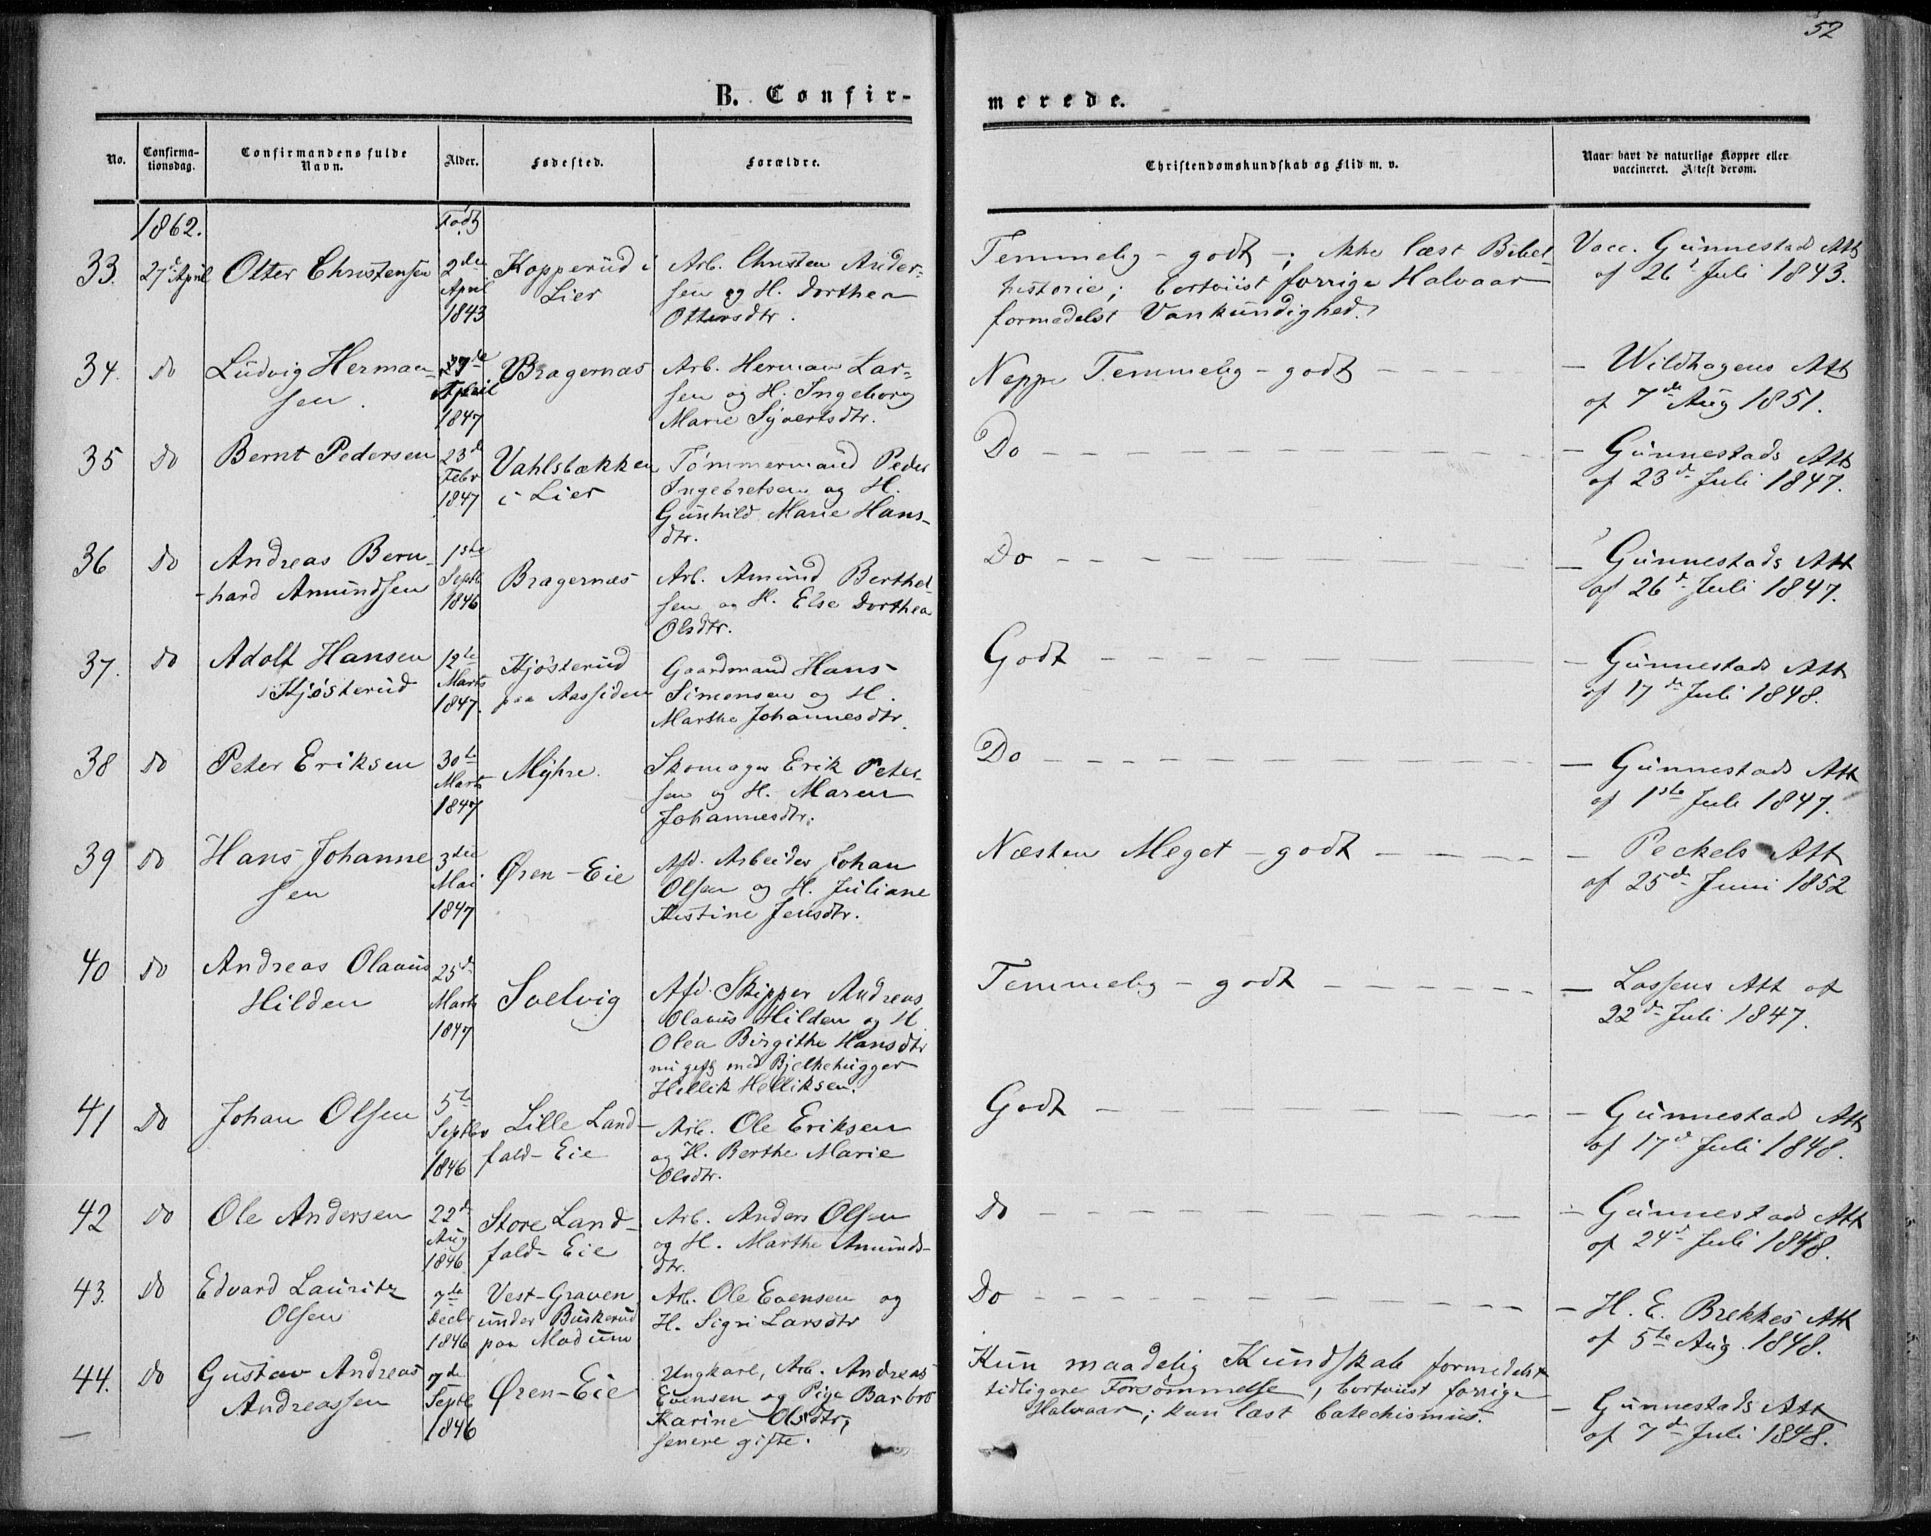 52
B. Confir-
merede.
No.
Confirma-
tionsdag.
Confirmandens fulde
Navn.
Alder.
Fødested.
Forældre.
Christendomskundskab og Flid m. v.
Naar havt de naturlige Kopper eller
vaccineret. Attest derom.
1862.
Født
33.
27d April
Otter Christensen
2den
April
1843
Kopperud i
Lier
Arb. Christen Ander-
sen og H. Dorthea
Ottersdtr.
Temmelig - godt -; ikke læst Bibel-
historie; bortviist forrige Halvaar
formedelst Vankundighed.
Vacc. Gunnestads Att
af 26d Juli 1843.
34.
Do
Ludvig Herman-
sen.
27de
April
1847
Bragernæs
Arb. Herman Lar-
sen og H. Ingeborg
Marie Syvertsdtr.
Neppe Temmelig - godt
- Wildhagens Att
af 7de Aug 1851.
35
Do
Bernt Pedersen
23d
Febr
1847
Vahlsbækken
i Lier
Tømmermand Peder
Ingebretsen og H.
Gunhild Marie Hans-
dtr.
Do
- Gunnestads Att
af 23d Juli 1847.
36
Do
Andreas Bern-
hard Amundsen
1ste
Septb
1846
Bragernæs
Arb. Amund Berthel-
sen og H. Else Dorthea
Olsdtr.
Do
- Gunnestads Att
af 26d Juli 1847.
37.
Do
Adolf Hansen
Kjøsterud
12te
Marts
1847.
Kjøsterud
paa Aassiden
Gaardmand Hans
Simonsen og H.
Marthe Johannesdtr.
Godt
- Gunnestads Att
af 17de Juli 1848.
38
Do
Peter Eriksen
30te
Marts
1847
Myhre.
Skomager Erik Peter-
sen og H. Maren
Johannesdtr.
Do
- Gunnestads Att
af 1ste Juli 1847.
39
Do
Hans Johanne
sen
3die
Mai
1847
Øren-Eie
Afd. Arbeider Johan
Olsen og H. Juliane
Kestine Jensdtr.
Næsten Meget - godt
- Peckels Att
af 25d Juni 1852
40
Do
Andreas Olaus
Hilden
25d
Marts
1847
Svelvig
Afd. Skipper Andreas
Olaus Hilden og H.
Olea Birgithe Hansdtr
nu gift med Bjelkehugger
Hellik Helliksen.
Temmelig - godt
- Lassens Att af
22d Juli 1847.
41
Do
Johan Olsen
5te
Septbr
1846
Lille Land-
fald-Eie
Arb. Ole Eriksen
og H. Berthe Marie
Olsdtr.
Godt
- Gunnestads Att
af 17d Juli 1848.
42
Do
Ole Andersen
22d
Aug
1846
Store Land-
fald-Eie
Arb. Anders Olsen
og H. Marthe Amunds-
dtr.
Do
- Gunnestads Att
af 24d Juli 1848.
43.
Do
Edvard Lauritz
Olsen
7te
Decbr
1846
Vest-Graven
under Buskerud
paa Modum
Arb. Ole Evensen og
H. Sigri Larsdtr
Do
- H. E. Brekkes Att
af 5te Aug. 1848.
44.
Do
Gustav Andreas
Andreassen
7de
Septb
1846
Øren-Eie
Ungkarl, Arb. Andreas
Evensen og Pige Barbro
Karine Olsdtr,
senere gifte.
Kun maadelig Kundskab formedelst
tidligere Forsømmelse, bortviist forrige
Halvaar; kun læst Catechismus.
- Gunnestads Att
af 7de Juli 1848.